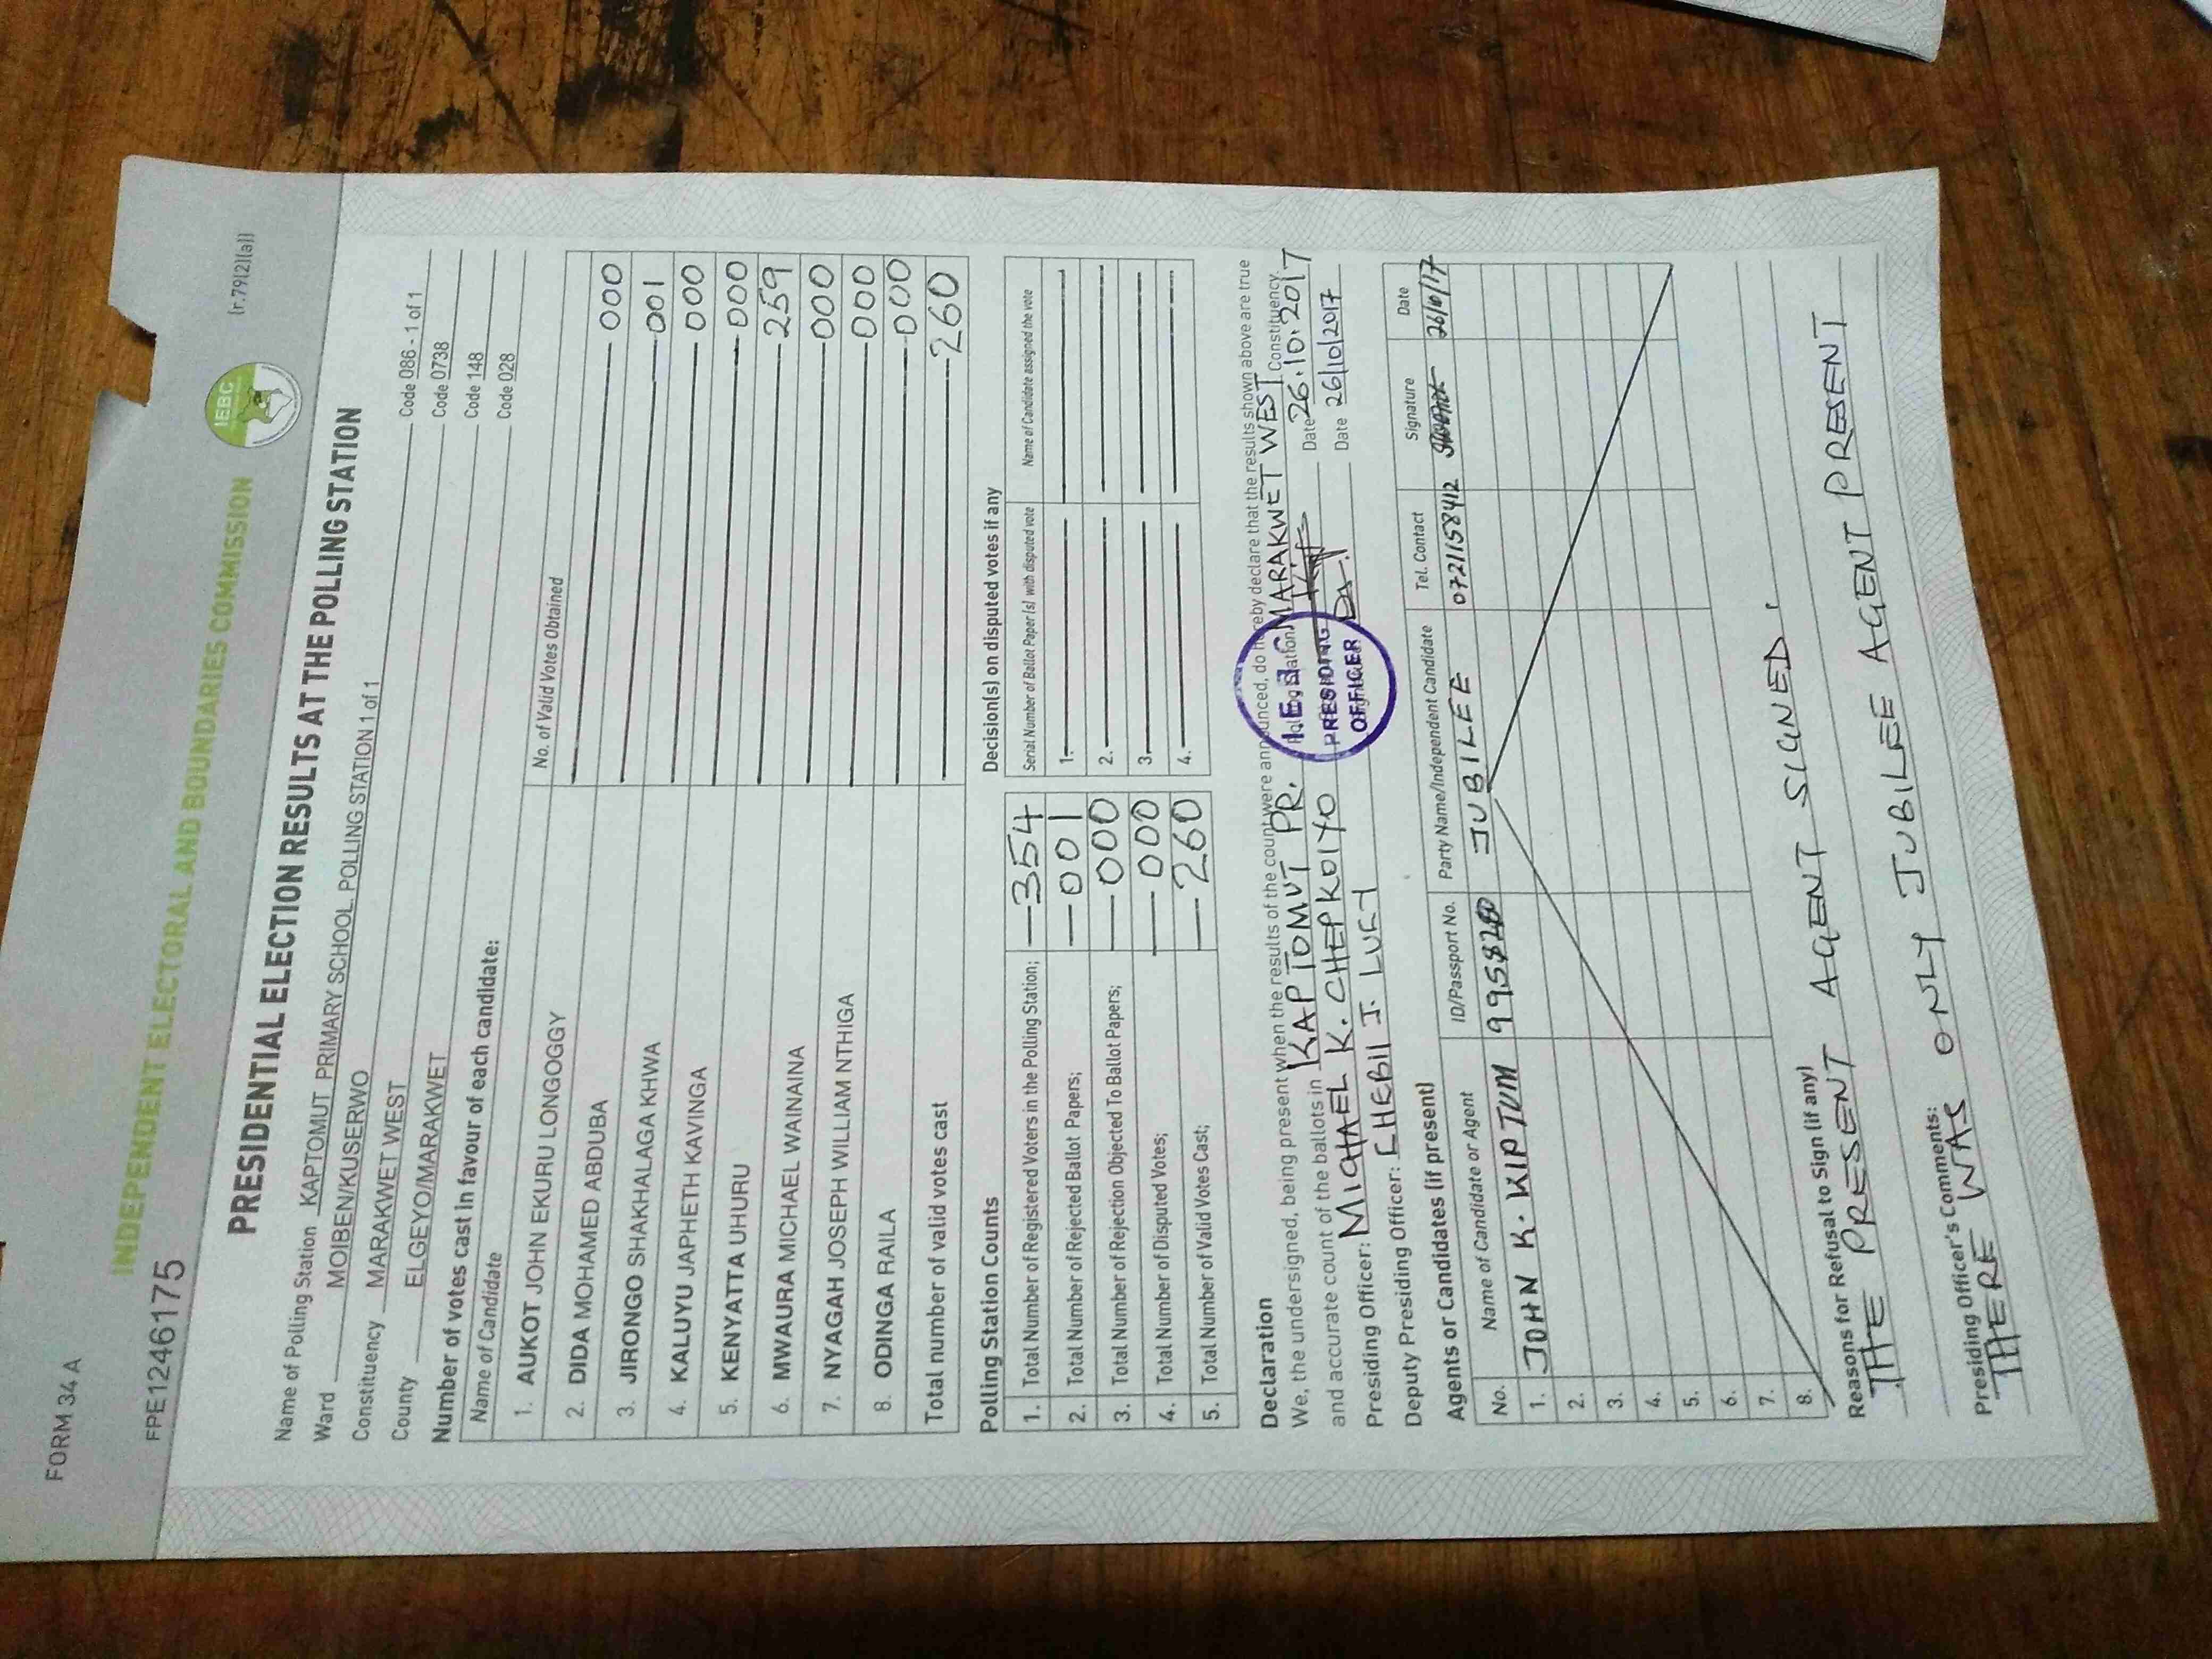 FORM 34 A
FPE1246175
INDEPENDENT ELECTORAL AND BOUNDARIES COMMISSION
IEBC
(r.79(2)(a))
PRESIDENTIAL ELECTION RESULTS AT THE POLLING STATION
Name of Polling Station KAPTOMUT PRIMARY SCHOOL POLLING STATION 1 of 1 Code 086 - 1 of 1
Ward MOIBEN/KUSERWO Code 0738
Constituency MARAKWET WEST Code 148
County ELGEYO/MARAKWET Code 028
Number of votes cast in favour of each candidate:
Name of Candidate No. of Valid Votes Obtained
1. AUKOT JOHN EKURU LONGOGGY 000
2. DIDA MOHAMED ABDUBA 001
3. JIRONGO SHAKHALAGA KHWA 000
4. KALUYU JAPHETH KAVINGA 000
5. KENYATTA UHURU 259
6. MWAURA MICHAEL WAINAINA 000
7. NYAGAH JOSEPH WILLIAM NTHIGA 000
8. ODINGA RAILA 000
Total number of valid votes cast 260
Polling Station Counts
1. Total Number of Registered Voters in the Polling Station; 354
2. Total Number of Rejected Ballot Papers; 001
3. Total Number of Rejection Objected To Ballot Papers; 000
4. Total Number of Disputed Votes; 000
5. Total Number of Valid Votes Cast; 260
Decision(s) on disputed votes if any
Serial Number of Ballot Paper (s) with disputed vote Name of Candidate assigned the vote
1.
2.
3.
4.
Declaration
We, the undersigned, being present when the results of the count were announced, do hereby declare that the results shown above are true
and accurate count of the ballots in KAPTOMUT PR. Polling Station MARAKWET WEST Constituency.
Presiding Officer: MICHAEL K. CHEPKOIYO Date 26.10.2017
Deputy Presiding Officer: CHEBII J. LUCY Date 26/10/2017
I.E.B.C
PRESIDING
OFFICER
Agents or Candidates (if present)
No. Name of Candidate or Agent ID/Passport No. Party Name/Independent Candidate Tel. Contact Signature Date
1. JOHN K. KIPTUM JUBILEE 0721158412 26/10/17
2.
3.
4.
5.
6.
7.
8.
Reasons for Refusal to Sign (if any)
THE PRESENT AGENT SIGNED.
Presiding Officer's Comments:
THERE WAS ONLY JUBILEE AGENT PRESENT